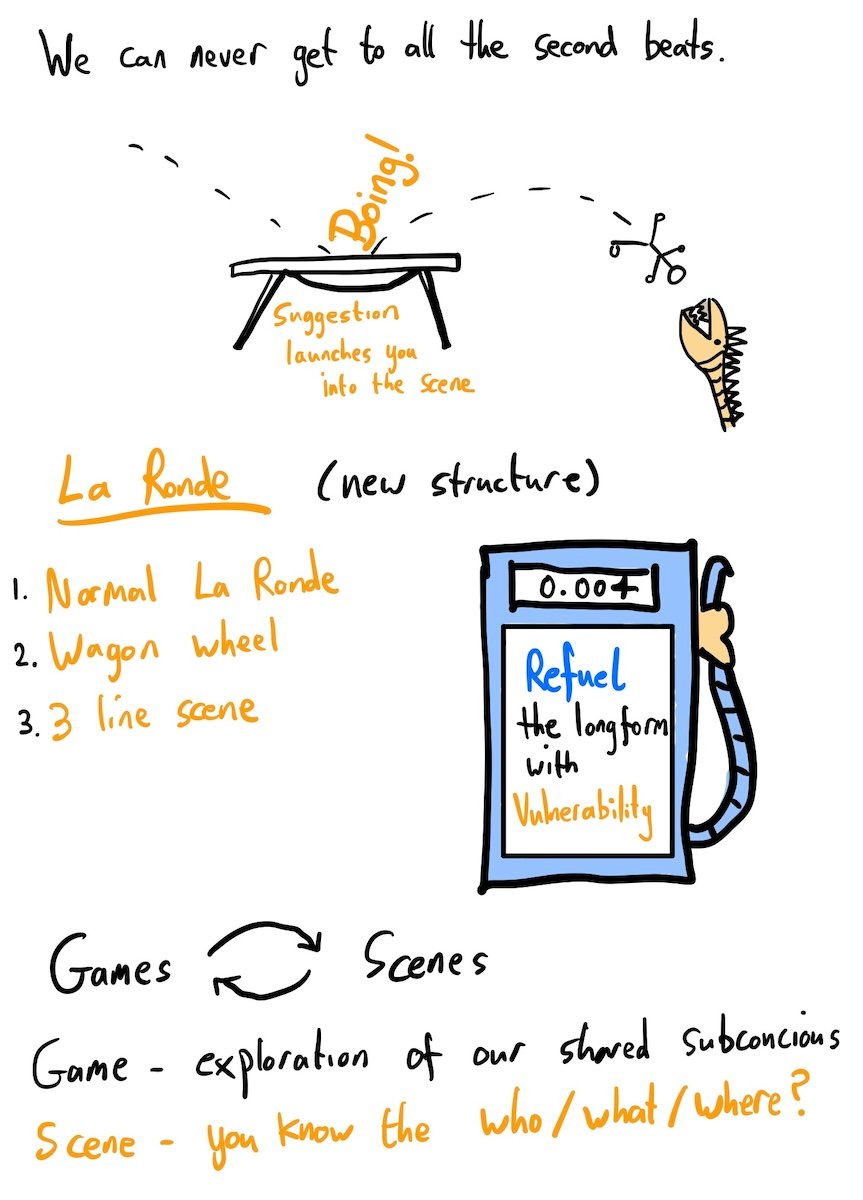 We can never get to all the second beats.
Boing!
Suggestion
launches you
into the scene
La Ronde (new structure)
1. Normal La Ronde
2. Wagon wheel
3. 3 line scene
0.004
Refuel
the longform
with
Vulnerability
Games Scenes
Game - exploration of our shared subconcious
Scene - you know the who/what/where?